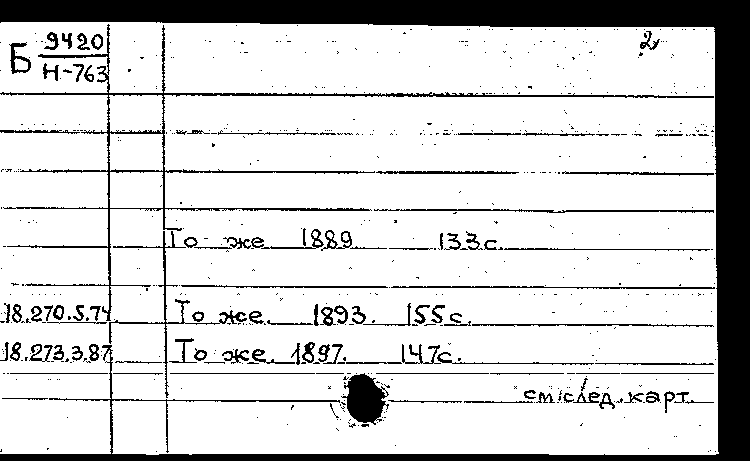 2
Б 9420
Н-763
То же 1889 133 с.
18.270.5.74. То же. 1893. 155 с.
18.273.3.87 То же. 1897. 147 с.
см. след. карт.